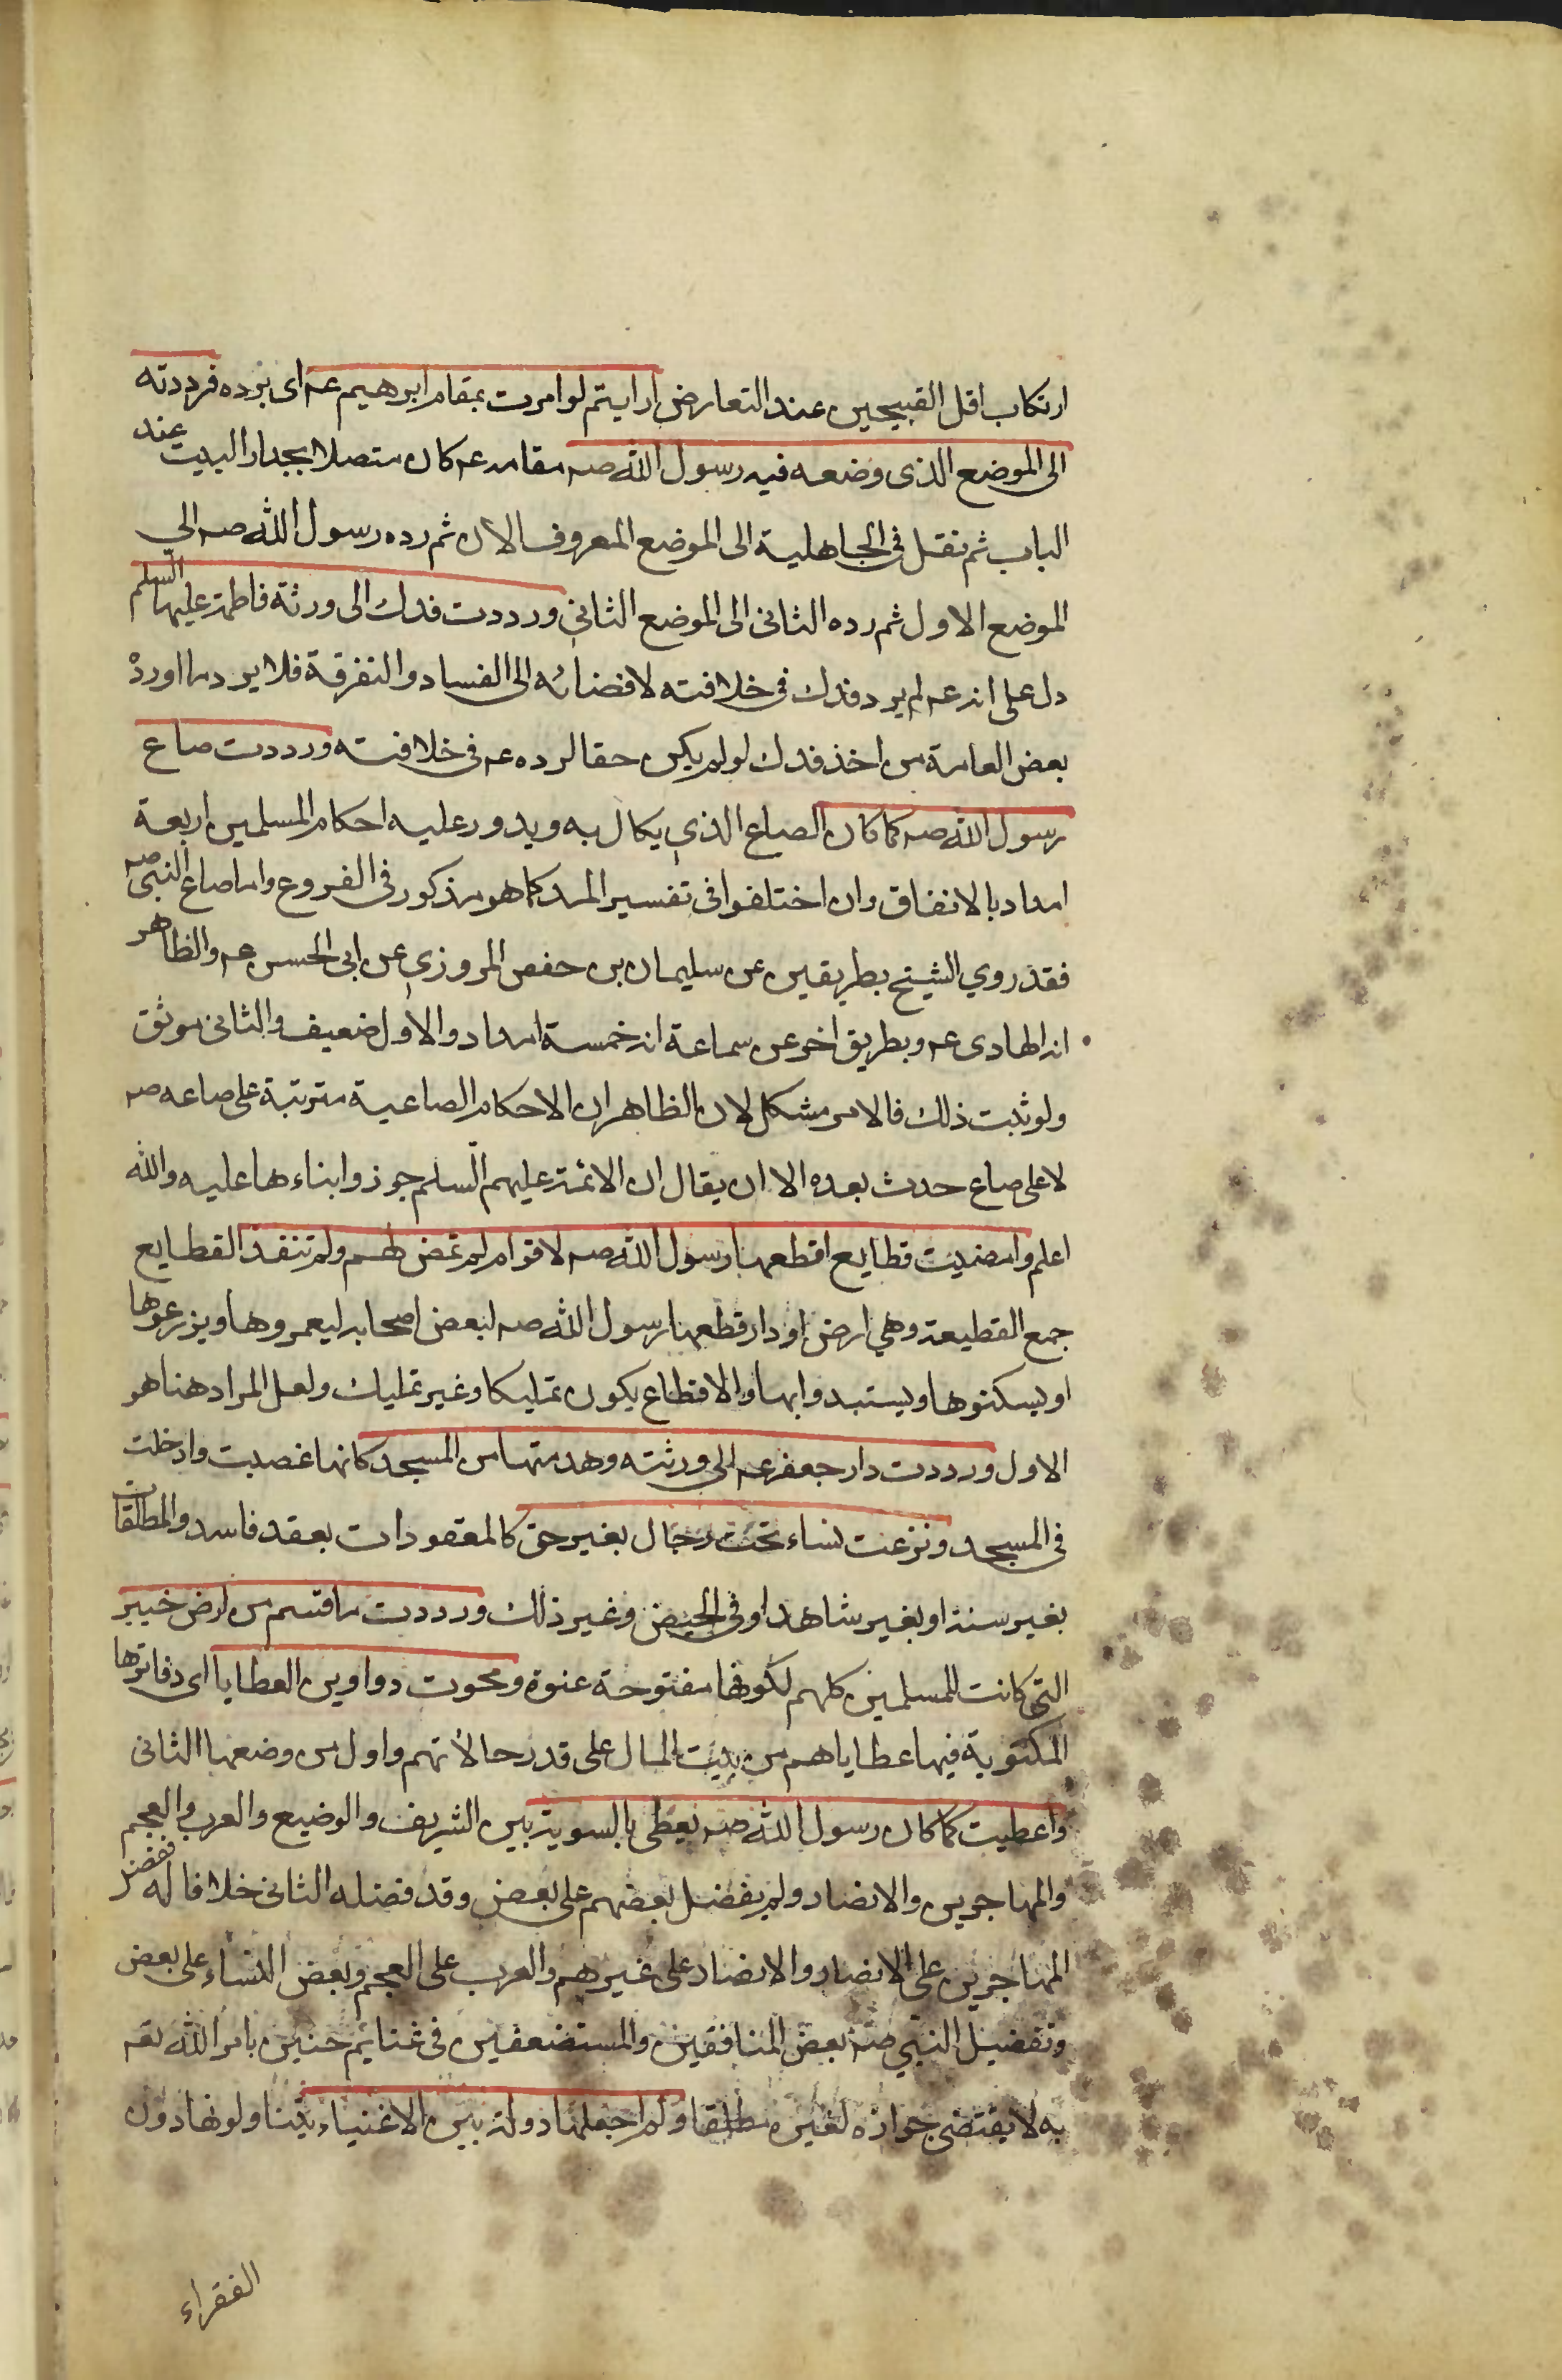 ارتكاب اقل القبيحين عند التعارض ارايتم لو امرت بمقام ابرهيم عه اى برده فرددته
الى الموضع الذى وضعه فيه رسول الله صه مقامه عه كان متصلا بجدار البيت عند
الباب ثم نقل فى الجاهلية الى الموضع المعروف الان ثم رده رسول الله صه الي
الموضع الاول ثم رده الثانى الى الموضع الثاني ورددت فدك الى ورثة فاطمة عليها السلم
دل على انه عه لم يرد فدك فى خلافته لافضائه الى الفساد والتفرقة فلا يرد ما اورده
بعض العامة من اخذ فدك لو لم يكن حقا لرده عه فى خلافته ورددت صاع
رسول الله صه كما كان الصاع الذي يكال به ويدور عليه احكام المسلمين اربعة
امداد بالاتفاق وان اختلفوا فى تفسير المد كما هو مذكور فى الفروع واما صاع النبى صه
فقد روي الشيخ بطريقين عن سليمان بن حفص المروزي عن ابى الحسن عه والظاهر
انه الهادى عه وبطريق اخر عن سماعة انه خمسة امداد والاول ضعيف والثانى موثق
ولو ثبت ذلك فالامر مشكل لان الظاهر ان الاحكام الصاعية مترتبة على صاعه صه
لا على صاع حدث بعده الا ان يقال ان الائمة عليهم السلم جوزوا بناءها عليه والله
اعلم وامضيت قطايع اقطعها رسول الله صه لاقوام لم تمض لهم ولم تنفذ القطايع
جمع القطيعة وهي ارض او دار قطعها رسول الله صه لبعض اصحابه ليعمروها ويزرعوها
او يسكنوها ويستبدوا بها والاقطاع يكون تمليكا وغير تمليك ولعل المراد هنا هو
الاول ورددت دار جعفر عه الى ورثته وهدمتها من المسجد كانها غصبت وادخلت
فى المسجد ونزعت نساء تحت رجال بغير حق كالمعقودات بعقد فاسد والمطلقات
بغير سنة او بغير شاهد او فى الحيض وغير ذلك ورددت ما قسم من ارض خيبر
التى كانت للمسلمين كلهم لكونها مفتوحة عنوة ومحوت دواوين العطايا اى دفاترها
المكتوبة فيها عطاياهم من بيت المال على قدر حالاتهم واول من وضعها الثانى
واعطيت كما كان رسول الله صه يعطى بالسوية بين الشريف والوضيع والعرب والعجم
والمهاجرين والانصار ولم يفضل بعضهم على بعض وقد فضله الثانى خلافا له ففضل
المهاجرين على الانصار والانصار على غيرهم والعرب على العجم وبعض النساء على بعض
وتفضيل النبي صه بعض المنافقين والمستضعفين فى غنايم حنين بامر الله تعه
به لا يقتضى جوازه لغيره مطلقا ولم اجعلها دولة بين الاغنياء يتناولونها دون
الفقراء